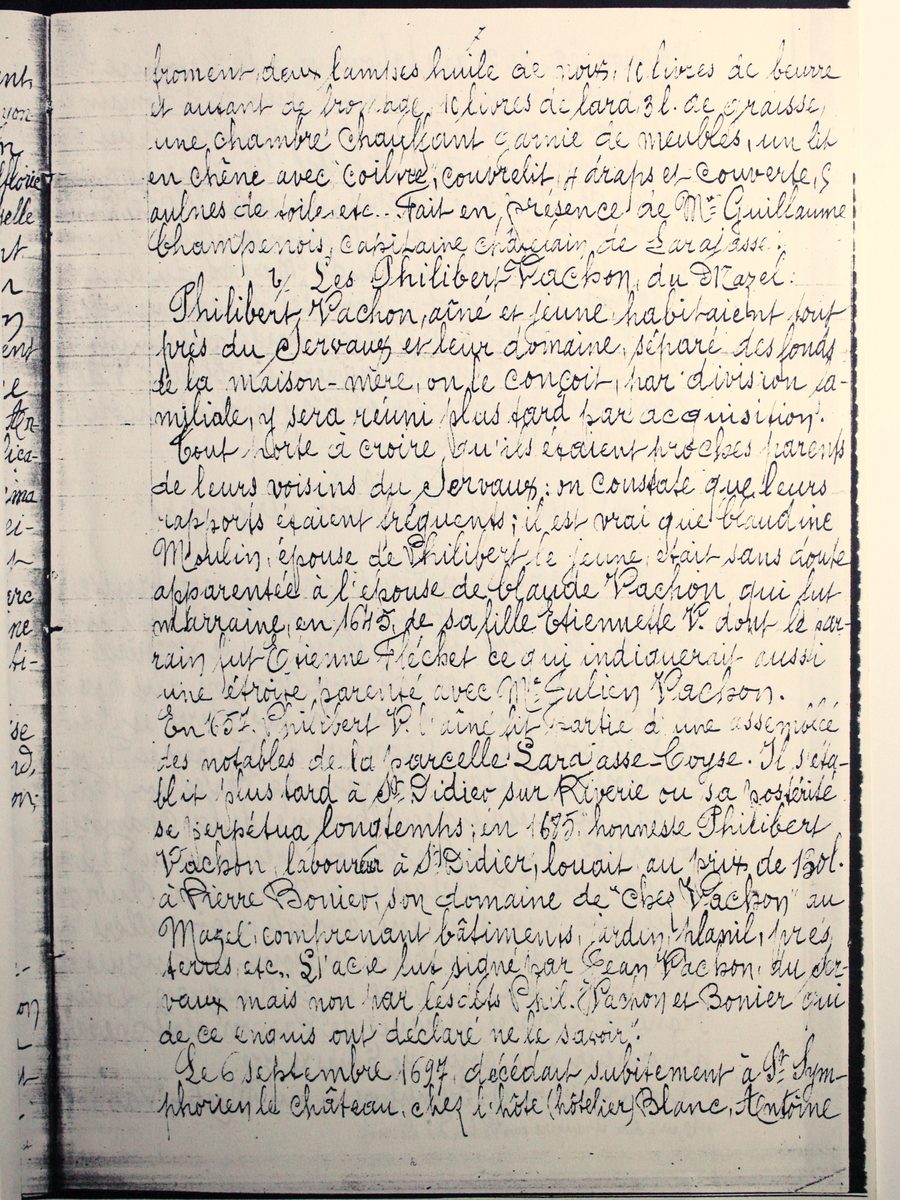 froment, deux lampes huile de noix, 10 livres de beurre
et autant de fromage, 10 livres de lard, 3 l. de graisse,
une chambre chauffant garnie de meubles, un lit
en chêne avec "coiltre", couvrelit, 4 draps et couverte, 5
aulnes de toile, etc.. Fait en présence de Mre Guillaume
Champenois, capitaine châtelain de Larajasse.
b/ Les Philibert Vachon, du Mazel:
Philibert Vachon, aîné et jeune habitaient tout
près du Servaux et leur domaine, séparé des fonds
de la maison-mère, on le conçoit, par division fa-
miliale, y sera réuni plus tard par acquisition.
Tout porte à croire qu'ils étaient proches parents
de leurs voisins du Servaux: on constate que leurs
rapports étaient fréquents; il est vrai que Claudine
Moulin, épouse de Philibert le jeune, était sans doute
apparentée à l'épouse de Claude Vachon qui fut
marraine, en 1645, de sa fille Etiennette V. dont le par-
rain fut Etienne Fléchet ce qui indiquerait aussi
une étroite parenté avec Mre Julien Vachon.
En Philibert V. l'aîné fit partie d'une assemblée
des notables de la parcelle Larajasse-Coyse. Il s'éta-
blit plus tard à St Didier sur Riverie ou sa postérité
se perpétua longtemps; en 1685, honneste Philibert
Vachon, laboureur à St Didier, louait au prix de 130l.
à Pierre Bonier, son domaine de "chez Vachon" au
Mazel, comprenant bâtiments, jardin, plasil, prés
terres, etc.. L'acte fut signé par Jean Vachon, du Ser-
vaux mais non par lesdits Phil. Vachon et Bonier qui
de ce enquis ont déclaré ne le savoir.
Le 6 septembre 1697, décédait subitement à St Sym-
phorien le château, chez l'hôte (hôtelier) Blanc, Antoine